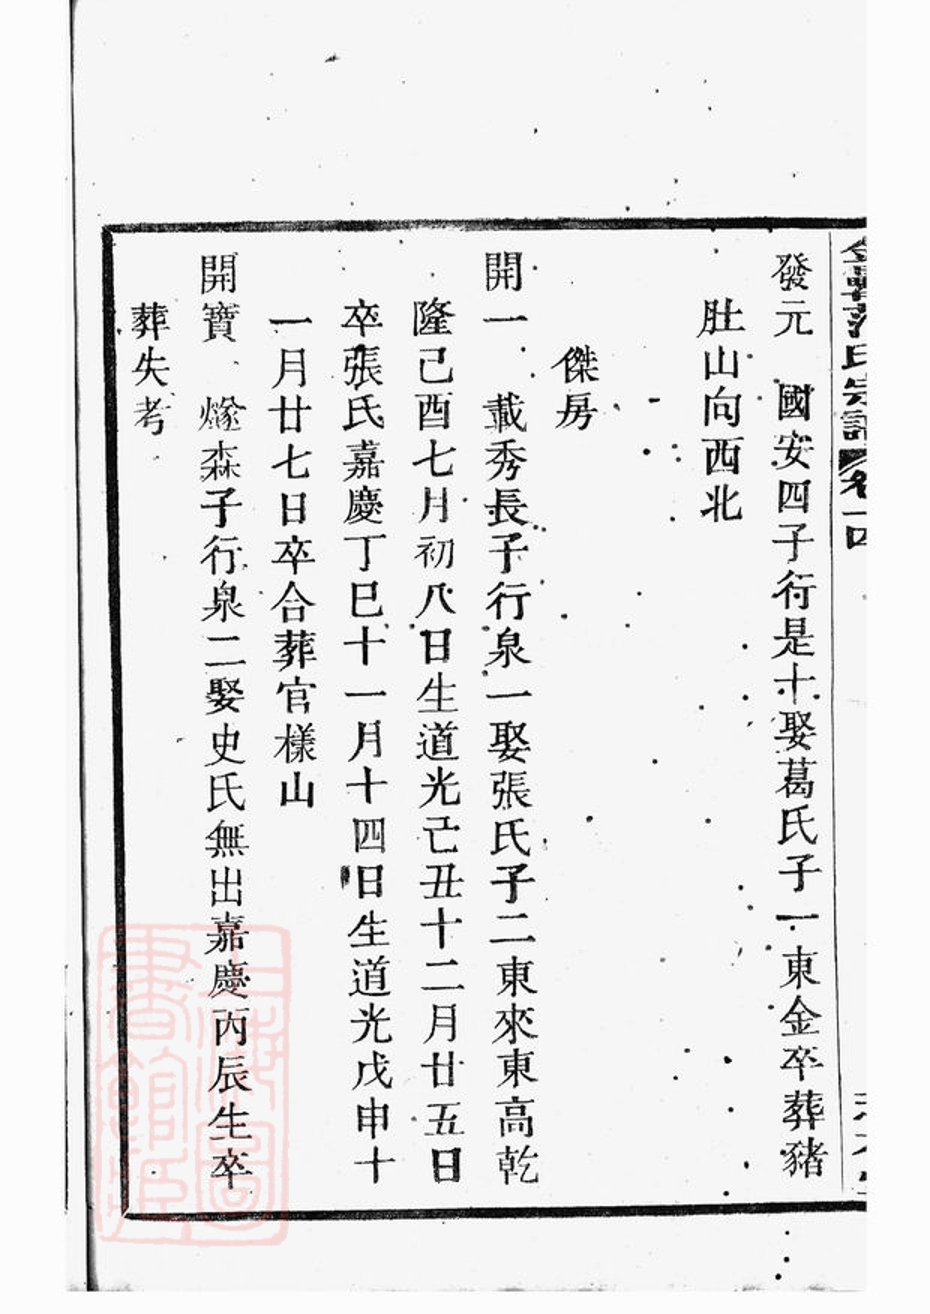 氏宗譜 卷十四
發元 國安四子行是十娶葛氏子一東金卒葬豬
肚山向西北
傑房
開一 載秀長子行泉一娶張氏子二東來東高乾
隆己酉七月初八日生道光己丑十二月廿五日
卒張氏嘉慶丁巳十一月十四日生道光戊申十
一月廿七日卒合葬官樣山
開寶 燧森子行泉二娶史氏無出嘉慶丙辰生卒
葬失考
上海圖
書館藏